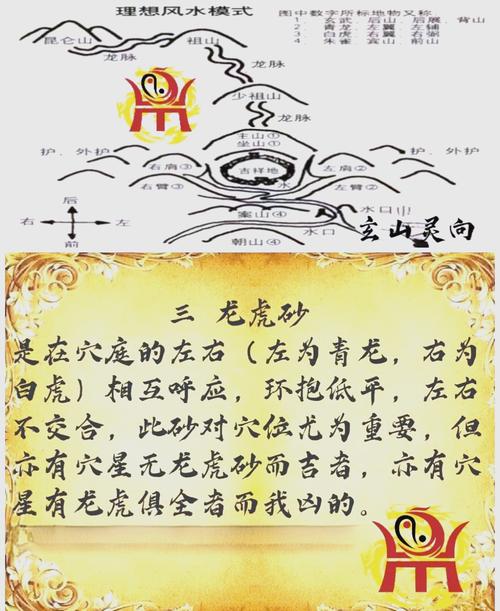 理想风水模式
图中数字所标地物又称
1、玄武、后山、后展、背山
2、青龙、左翼、左辅
3、白虎、右翼、右弼
4、朱雀、宾山、前山
昆仑山
祖山
龙脉
龙脉
少祖山
龙脉
主山①
坐山①
护、外护
护、外护
右肩③
吉祥地
左肩②
右臂③
水
左臂②
后
右
左
前
案山④
水口
水口
朝山④
玄山灵向
三 龙虎砂
是在穴庭的左右（左为青龙，右为
白虎）相互呼应，环抱低平，左右
不交合，此砂对穴位尤为重要，但
亦有穴星无龙虎砂而吉者，亦有穴
星有龙虎俱全者而我凶的。